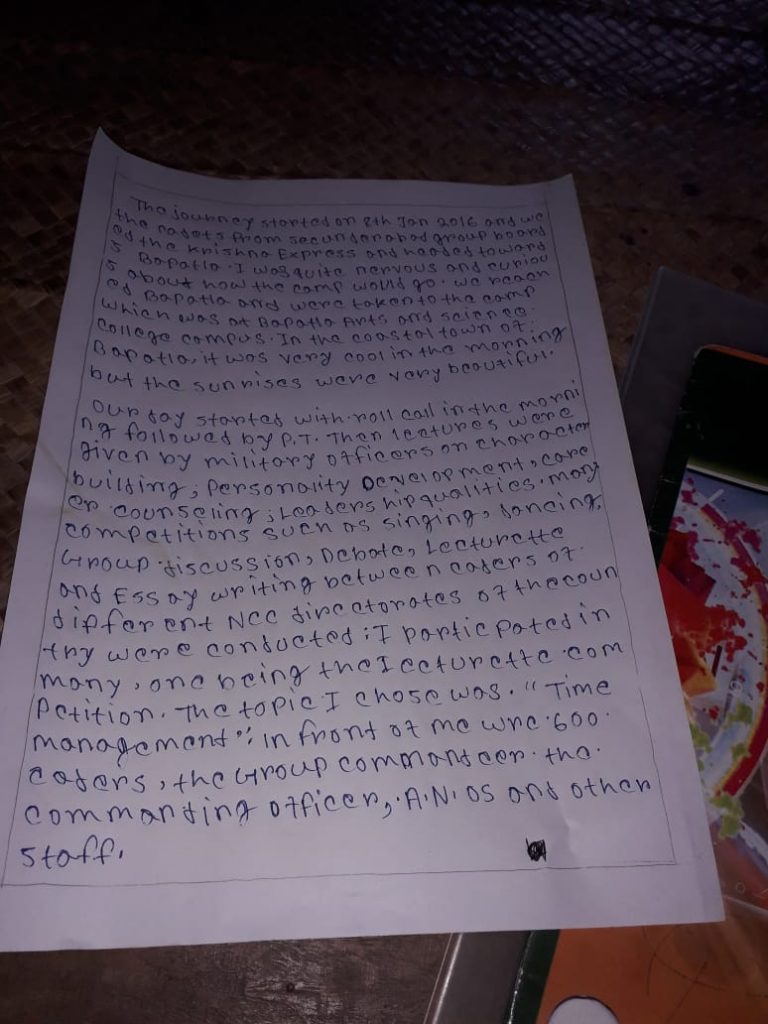 The journey started on 8th Jan 2016 and we
the cadets from secunderabad group board
ed the Krishna Express and headed toward
s Bapatla. I was quite nervous and curiou
s about how the camp would go. we reach
ed Bapatla and were taken to the camp
which was at Bapatla Arts and science.
college campus. In the coastal town of.
Bapatla, it was very cool in the morning
but the sunrises were very beautiful.
Our day started with roll call in the morni
ng followed by P.T. Then lectures were
given by military officers on character
building, Personality Development, care
er counseling, Leaders hip qualities. many
competitions such as singing, dancing,
Group discussion, Debate, Lecturette
and Essay writing between caders of.
different NCC directorates of the coun
try were conducted; I particpated in
many, one being the Iecturette com
Petition. The topic I chose was. "Time
management"; in front of me wre 600.
caders, the Group commandeer. the.
commanding officer, A.N.OS and other
staff.